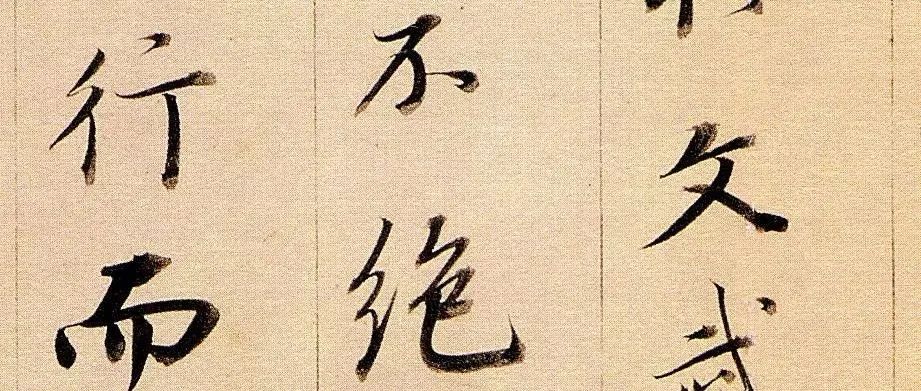 文武
不绝
行而